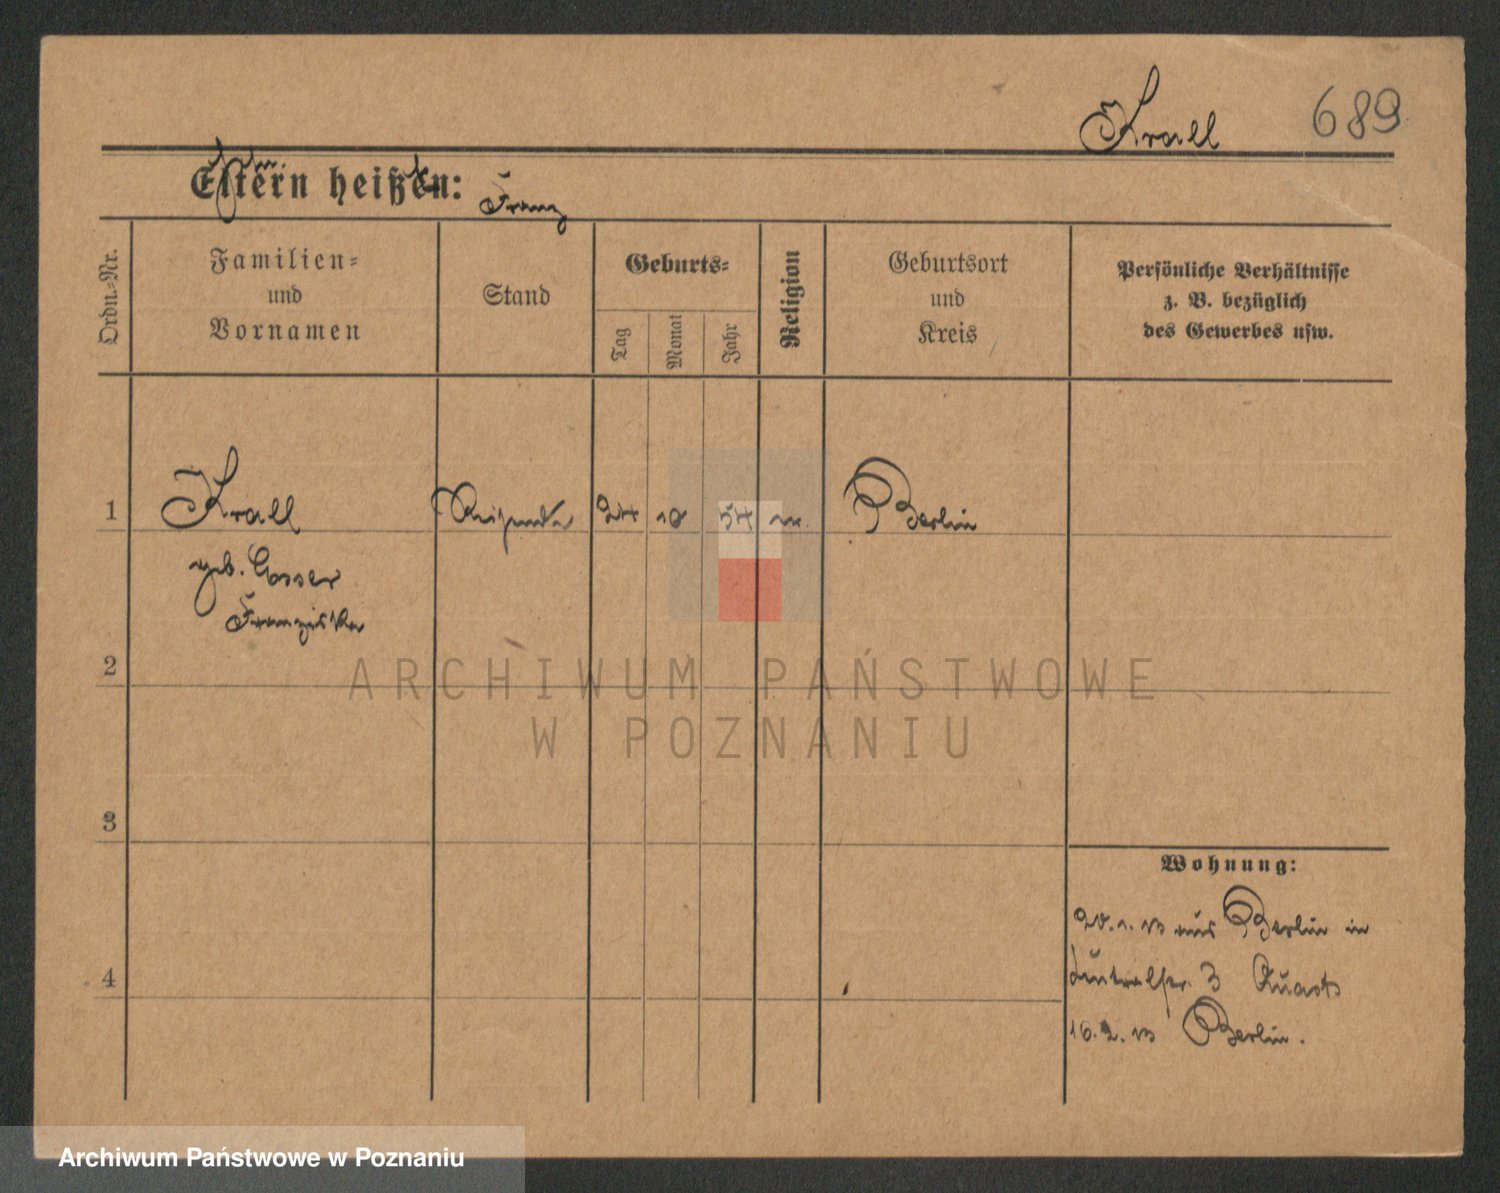 Krall 689
Eltern heißen: Franz
Ordn.-Nr.
Familien-
und
Vornamen
Stand
Geburts-
Tag
Monat
Jahr
Religion
Geburtsort
und
Kreis
Persönliche Verhältnisse
z. B. bezüglich
des Gewerbes usw.
1 Krall Reisende 24 10 54 Berlin
geb. Cosser
Franziska
2
3
4
Wohnung:
20. 1. 13 aus Berlin in
3
16. 2. 13 Berlin.
ARCHIWUM PAŃSTWOWE
W POZNANIU
Archiwum Państwowe w Poznaniu